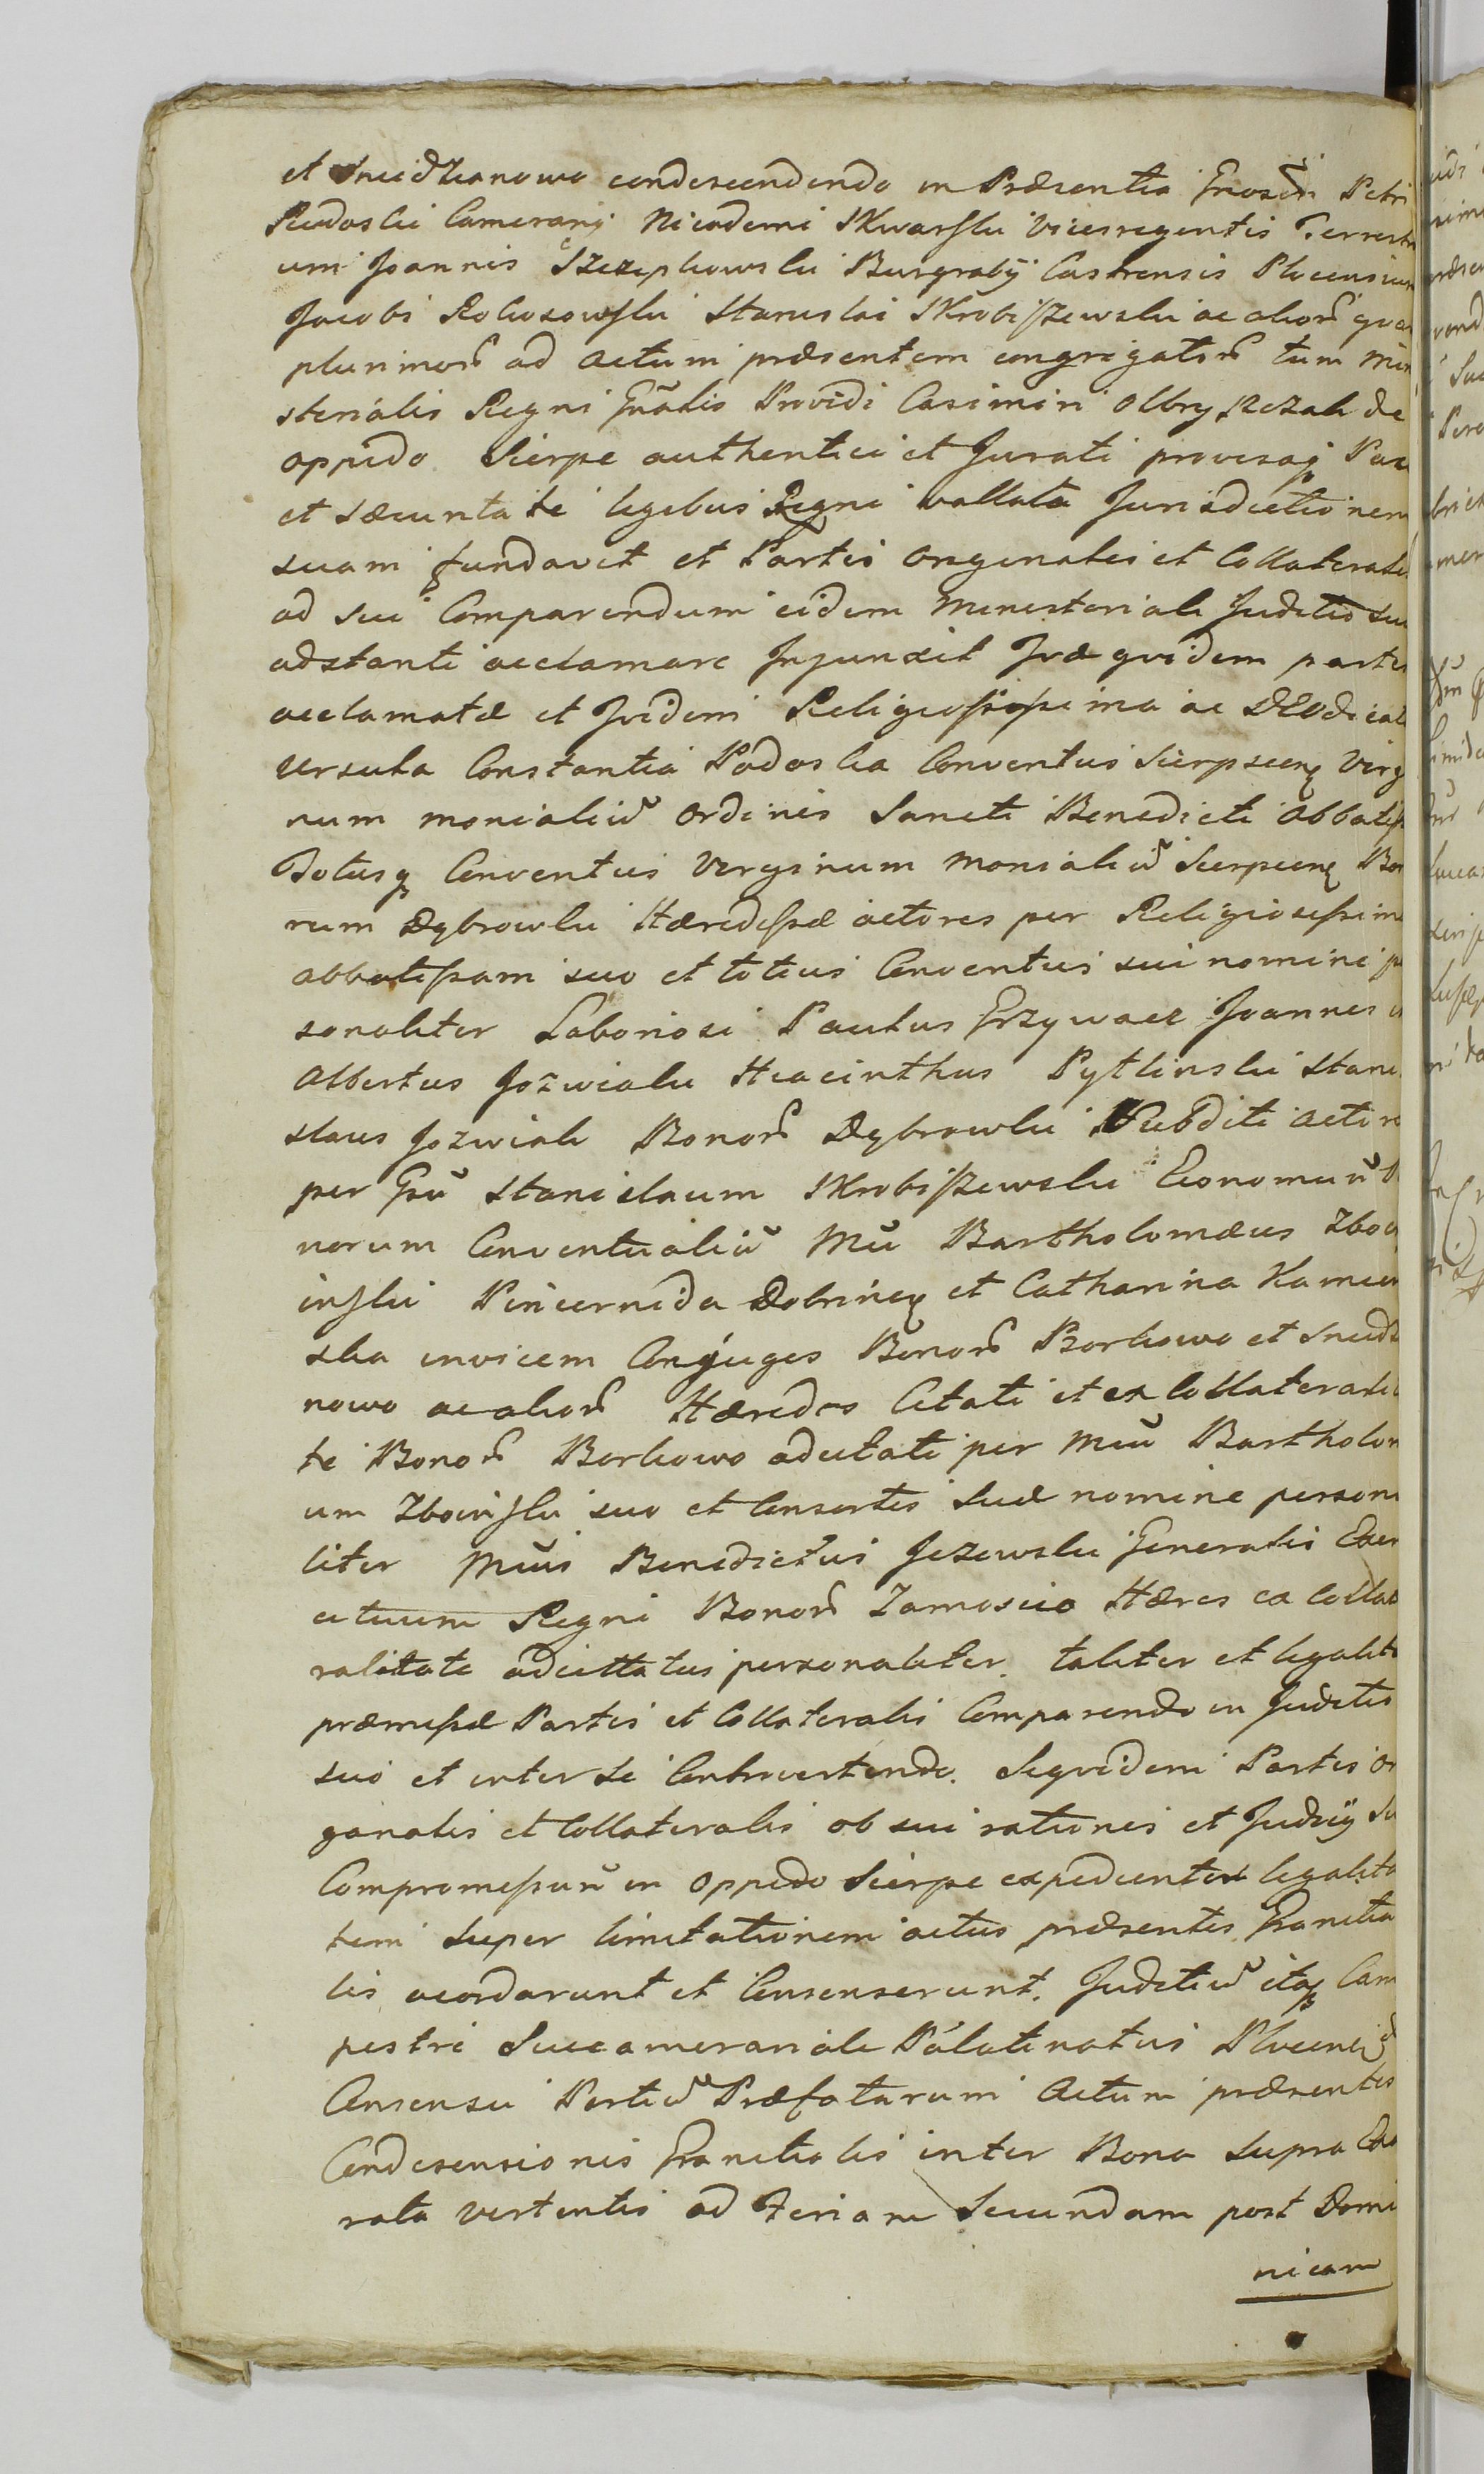 et Sniedzanowo condescendendo in Præsentia Gnosor̃ Petri
Rudoski Camerarij Nicodemi Skwarski Vicesregentis Terrestri
um Joannis Szczepkowski Burgrabÿ Castrensis Plocensium
Jacobi Rokosowski Stanislai Skrobiszewski ac alior̃ qva
plurimor̃ ad actum præsentem congregator̃ tum Mini
sterialis Regni Gñalis Providi Casimiri Olbryszczak de
oppido Sierpc authentici et Jurati provisaq Pace
et sæcuritate legibus Regni vallata Jurisdictionem
suam fundavit et Partes originales et Collaterales
ad sui Comparendum eidem Ministeriali Juditio suo
adstanti acclamare Injunxit Jvæ qvidem partes
acclamatæ et Ividem Religiosissima ac DEOdicat
Ursula Constantia Podoska Conventus Sierpscen Virg
num monialiũ Ordinis Sancti Benedicti Abbatiss
Totusq Conventus Virginum Monialiũ Sierpcen Bo
rum Dębrowki Hæredissæ actores per Religiosissima
abbatissam suo et totius Conventus sui nomine p
sonaliter Laboriosi Paulus Grzywacz Joannes
Albertus Jozwiak Hiacinthus Pytlinski Stani
slaus Jozwiak Bonor̃ Dębrowki Subditi actores
per Gsũ Stanislaum Skrobiszewski Economũ B
norum Conventualiũ Mũ Bartholomæus Zbo
inski Pincernida Dobrinen et Catharina Kamien
ska invicem Conjuges Bonor̃ Borkowo et Sniedz
nowo ac alior̃ Hæredes Citati et ex Collaterali
te Bonor̃ Borkowo adcitati per Mũ Bartholom
um Zboinski suo et Consortis suæ nomine persona
liter Mũs Benedictus Jezewski Generalis Exer
cituum Regni Bonor̃ Zamoscie Hæres ex Collate
ralitate adcittatus personaliter. taliter et legalite
præmissæ Partes et Collaterales Comparendo in Juditio
suo et inter se Controvertendo. Seqvidem Partes Or
ganales et Collaterales ob sui rationes et Judicÿ Su
Compromissum in Oppido Sierpc expedienter legalita
tem super limitationem actus præsentis Granitia
lis acordarunt et Consenserunt. Juditiũ itaq Cam
pestre Succamerariale Palatinatus Plocen
Consensu Partiũ Præfatarum Actum præsentis
Condesensionis Granitialis inter Bona supra Expr
rata vertentis ad Feriam Secundam post Domi
nicam